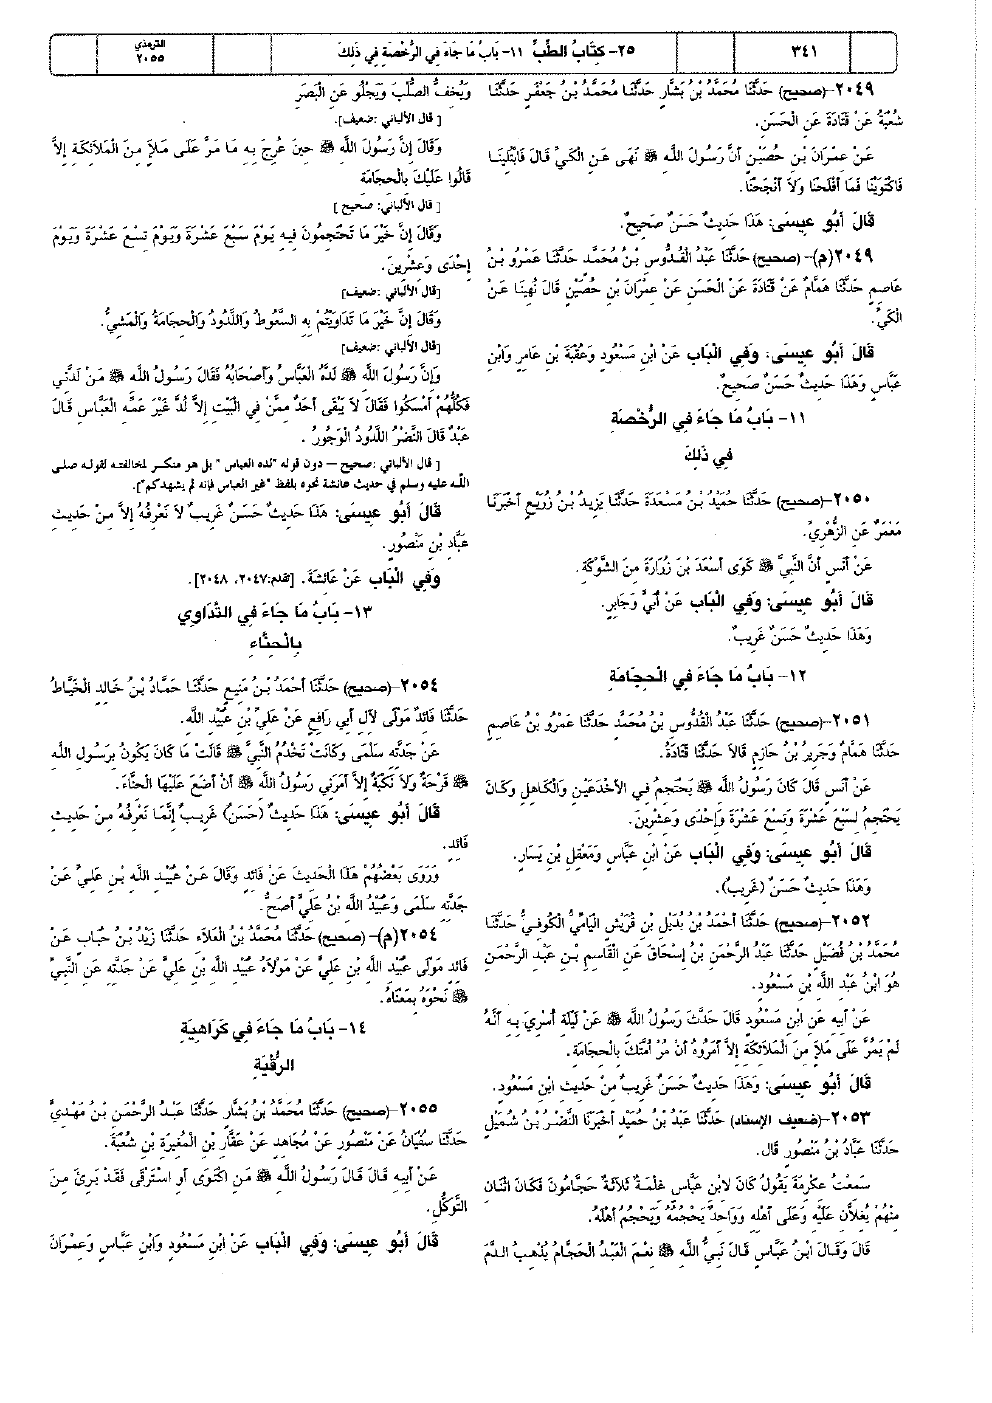 ٣٤١
٢٥- كِتَابُ الطِّبِّ ١١- بَابُ مَا جَاءَ فِي الرُّخْصَةِ فِي ذَلِكَ
الترمذي
٢٠٥٥
٢٠٤٩-(صحيح) حَدَّثَنَا مُحَمَّدُ بْنُ بَشَّارٍ حَدَّثَنَا مُحَمَّدُ بْنُ جَعْفَرٍ حَدَّثَنَا
شُعْبَةُ عَنْ قَتَادَةَ عَنِ الْحَسَنِ.
عَنْ عِمْرَانَ بْنِ حُصَيْنٍ أَنَّ رَسُولَ اللَّهِ ﷺ نَهَى عَنِ الْكَيِّ قَالَ فَابْتُلِينَا
فَاكْتَوَيْنَا فَمَا أَفْلَحْنَا وَلاَ أَنْجَحْنَا.
قَالَ أَبُو عِيسَى: هَذَا حَدِيثٌ حَسَنٌ صَحِيحٌ.
٢٠٤٩(م)- (صحيح) حَدَّثَنَا عَبْدُ الْقُدُّوسِ بْنُ مُحَمَّدٍ حَدَّثَنَا عَمْرُو بْنُ
عَاصِمٍ حَدَّثَنَا هَمَّامٌ عَنْ قَتَادَةَ عَنِ الْحَسَنِ عَنْ عِمْرَانَ بْنِ حُصَيْنٍ قَالَ نُهِينَا عَنْ
الْكَيِّ.
قَالَ أَبُو عِيسَى: وَفِي الْبَابِ عَنْ ابْنِ مَسْعُودٍ وَعُقْبَةَ بْنِ عَامِرٍ وَابْنِ
عَبَّاسٍ وَهَذَا حَدِيثٌ حَسَنٌ صَحِيحٌ.
١١- بَابُ مَا جَاءَ فِي الرُّخْصَةِ
فِي ذَلِكَ
٢٠٥٠-(صحيح) حَدَّثَنَا حُمَيْدُ بْنُ مَسْعَدَةَ حَدَّثَنَا يَزِيدُ بْنُ زُرَيْعٍ أَخْبَرَنَا
مَعْمَرٌ عَنِ الزُّهْرِيِّ.
عَنْ أَنَسٍ أَنَّ النَّبِيَّ ﷺ كَوَى أَسْعَدَ بْنَ زُرَارَةَ مِنَ الشَّوْكَةِ.
قَالَ أَبُو عِيسَى: وَفِي الْبَابِ عَنْ أُبَيٍّ وَجَابِرٍ.
وَهَذَا حَدِيثٌ حَسَنٌ غَرِيبٌ.
١٢- بَابُ مَا جَاءَ فِي الْحِجَامَةِ
٢٠٥١-(صحيح) حَدَّثَنَا عَبْدُ الْقُدُّوسِ بْنُ مُحَمَّدٍ حَدَّثَنَا عَمْرُو بْنُ عَاصِمٍ
حَدَّثَنَا هَمَّامٌ وَجَرِيرُ بْنُ حَازِمٍ قَالاَ حَدَّثَنَا قَتَادَةُ.
عَنْ أَنَسٍ قَالَ كَانَ رَسُولُ اللَّهِ ﷺ يَحْتَجِمُ فِي الأَخْدَعَيْنِ وَالْكَاهِلِ وَكَانَ
يَحْتَجِمُ لِسَبْعَ عَشْرَةَ وَتِسْعَ عَشْرَةَ وَإِحْدَى وَعِشْرِينَ.
قَالَ أَبُو عِيسَى: وَفِي الْبَابِ عَنْ ابْنِ عَبَّاسٍ وَمَعْقِلِ بْنِ يَسَارٍ.
وَهَذَا حَدِيثٌ حَسَنٌ (غَرِيبٌ).
٢٠٥٢-(صحيح) حَدَّثَنَا أَحْمَدُ بْنُ بُدَيْلِ بْنِ قُرَيْشٍ الْيَامِيُّ الْكُوفِيُّ حَدَّثَنَا
مُحَمَّدُ بْنُ فُضَيْلٍ حَدَّثَنَا عَبْدُ الرَّحْمَنِ بْنُ إِسْحَاقَ عَنِ الْقَاسِمِ بْنِ عَبْدِ الرَّحْمَنِ
هُوَ ابْنُ عَبْدِ اللَّهِ بْنِ مَسْعُودٍ.
عَنْ أَبِيهِ عَنِ ابْنِ مَسْعُودٍ قَالَ حَدَّثَ رَسُولُ اللَّهِ ﷺ عَنْ لَيْلَةِ أُسْرِيَ بِهِ أَنَّهُ
لَمْ يَمُرَّ عَلَى مَلإٍ مِنَ الْمَلاَئِكَةِ إِلاَّ أَمَرُوهُ أَنْ مُرْ أُمَّتَكَ بِالْحِجَامَةِ.
قَالَ أَبُو عِيسَى: وَهَذَا حَدِيثٌ حَسَنٌ غَرِيبٌ مِنْ حَدِيثِ ابْنِ مَسْعُودٍ.
٢٠٥٣-(ضعيف الإسناد) حَدَّثَنَا عَبْدُ بْنُ حُمَيْدٍ أَخْبَرَنَا النَّضْرُ بْنُ شُمَيْلٍ
حَدَّثَنَا عَبَّادُ بْنُ مَنْصُورٍ قَالَ.
سَمِعْتُ عِكْرِمَةَ يَقُولُ كَانَ لاِبْنِ عَبَّاسٍ غِلْمَةٌ ثَلاَثَةٌ حَجَّامُونَ فَكَانَ اثْنَانِ
مِنْهُمْ يُغِلاَّنِ عَلَيْهِ وَعَلَى أَهْلِهِ وَوَاحِدٌ يَحْجُمُهُ وَيَحْجُمُ أَهْلَهُ.
قَالَ وَقَالَ ابْنُ عَبَّاسٍ قَالَ نَبِيُّ اللَّهِ ﷺ نِعْمَ الْعَبْدُ الْحَجَّامُ يُذْهِبُ الدَّمَ
وَيُخِفُّ الصُّلْبَ وَيَجْلُو عَنِ الْبَصَرِ
[ قال الألباني :ضعيف].
وَقَالَ إِنَّ رَسُولَ اللَّهِ ﷺ حِينَ عُرِجَ بِهِ مَا مَرَّ عَلَى مَلإٍ مِنَ الْمَلاَئِكَةِ إِلاَّ
قَالُوا عَلَيْكَ بِالْحِجَامَةِ
[ قال الألباني: صحيح ]
وَقَالَ إِنَّ خَيْرَ مَا تَحْتَجِمُونَ فِيهِ يَوْمَ سَبْعَ عَشْرَةَ وَيَوْمَ تِسْعَ عَشْرَةَ وَيَوْمَ
إِحْدَى وَعِشْرِينَ.
[قال الألباني :ضعيف]
وَقَالَ إِنَّ خَيْرَ مَا تَدَاوَيْتُمْ بِهِ السَّعُوطُ وَاللَّدُودُ وَالْحِجَامَةُ وَالْمَشِيُّ.
[قال الألباني :ضعيف]
وَإِنَّ رَسُولَ اللَّهِ ﷺ لَدَّهُ الْعَبَّاسُ وَأَصْحَابُهُ فَقَالَ رَسُولُ اللَّهِ ﷺ مَنْ لَدَّنِي
فَكُلُّهُمْ أَمْسَكُوا فَقَالَ لاَ يَبْقَى أَحَدٌ مِمَّنْ فِي الْبَيْتِ إِلاَّ لُدَّ غَيْرَ عَمِّهِ الْعَبَّاسِ قَالَ
عَبْدٌ قَالَ النَّضْرُ اللَّدُودُ الْوَجُورُ .
[ قال الألباني :صحيح – دون قوله "لده العباس " بل هو منكر لمخالفته لقوله صلى
الله عليه وسلم في حديث عائشة نحوه بلفظ "غير العباس فإنه لم يشهدكم"].
قَالَ أَبُو عِيسَى: هَذَا حَدِيثٌ حَسَنٌ غَرِيبٌ لاَ نَعْرِفُهُ إِلاَّ مِنْ حَدِيثِ
عَبَّادِ بْنِ مَنْصُورٍ.
وَفِي الْبَابِ عَنْ عَائِشَةَ. [تقدم:٢٠٤٧، ٢٠٤٨].
١٣- بَابُ مَا جَاءَ فِي التَّدَاوِي
بِالْحِنَّاءِ
٢٠٥٤-(صحيح) حَدَّثَنَا أَحْمَدُ بْنُ مَنِيعٍ حَدَّثَنَا حَمَّادُ بْنُ خَالِدٍ الْخَيَّاطُ
حَدَّثَنَا فَائِدٌ مَوْلَى لآلِ أَبِي رَافِعٍ عَنْ عَلِيِّ بْنِ عُبَيْدِ اللَّهِ.
عَنْ جَدَّتِهِ سَلْمَى وَكَانَتْ تَخْدُمُ النَّبِيَّ ﷺ قَالَتْ مَا كَانَ يَكُونُ بِرَسُولِ اللَّهِ
ﷺ قَرْحَةٌ وَلاَ نَكْبَةٌ إِلاَّ أَمَرَنِي رَسُولُ اللَّهِ ﷺ أَنْ أَضَعَ عَلَيْهَا الْحِنَّاءَ.
قَالَ أَبُو عِيسَى: هَذَا حَدِيثٌ (حَسَنٌ) غَرِيبٌ إِنَّمَا نَعْرِفُهُ مِنْ حَدِيثِ
فَائِدٍ.
وَرَوَى بَعْضُهُمْ هَذَا الْحَدِيثَ عَنْ فَائِدٍ وَقَالَ عَنْ عُبَيْدِ اللَّهِ بْنِ عَلِيٍّ عَنْ
جَدَّتِهِ سَلْمَى وَعُبَيْدُ اللَّهِ بْنُ عَلِيٍّ أَصَحُّ.
٢٠٥٤(م)- (صحيح) حَدَّثَنَا مُحَمَّدُ بْنُ الْعَلاَءِ حَدَّثَنَا زَيْدُ بْنُ حُبَابٍ عَنْ
فَائِدٍ مَوْلَى عُبَيْدِ اللَّهِ بْنِ عَلِيٍّ عَنْ مَوْلاَهُ عُبَيْدِ اللَّهِ بْنِ عَلِيٍّ عَنْ جَدَّتِهِ عَنِ النَّبِيِّ
ﷺ نَحْوَهُ بِمَعْنَاهُ.
١٤- بَابُ مَا جَاءَ فِي كَرَاهِيَةِ
الرُّقْيَةِ
٢٠٥٥-(صحيح) حَدَّثَنَا مُحَمَّدُ بْنُ بَشَّارٍ حَدَّثَنَا عَبْدُ الرَّحْمَنِ بْنُ مَهْدِيٍّ
حَدَّثَنَا سُفْيَانُ عَنْ مَنْصُورٍ عَنْ مُجَاهِدٍ عَنْ عَقَّارِ بْنِ الْمُغِيرَةِ بْنِ شُعْبَةَ.
عَنْ أَبِيهِ قَالَ قَالَ رَسُولُ اللَّهِ ﷺ مَنِ اكْتَوَى أَوِ اسْتَرْقَى فَقَدْ بَرِئَ مِنَ
التَّوَكُّلِ.
قَالَ أَبُو عِيسَى: وَفِي الْبَابِ عَنْ ابْنِ مَسْعُودٍ وَابْنِ عَبَّاسٍ وَعِمْرَانَ